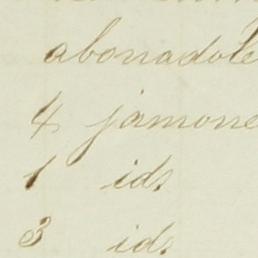 abonadole
4 jamone
1 id.
3 id.